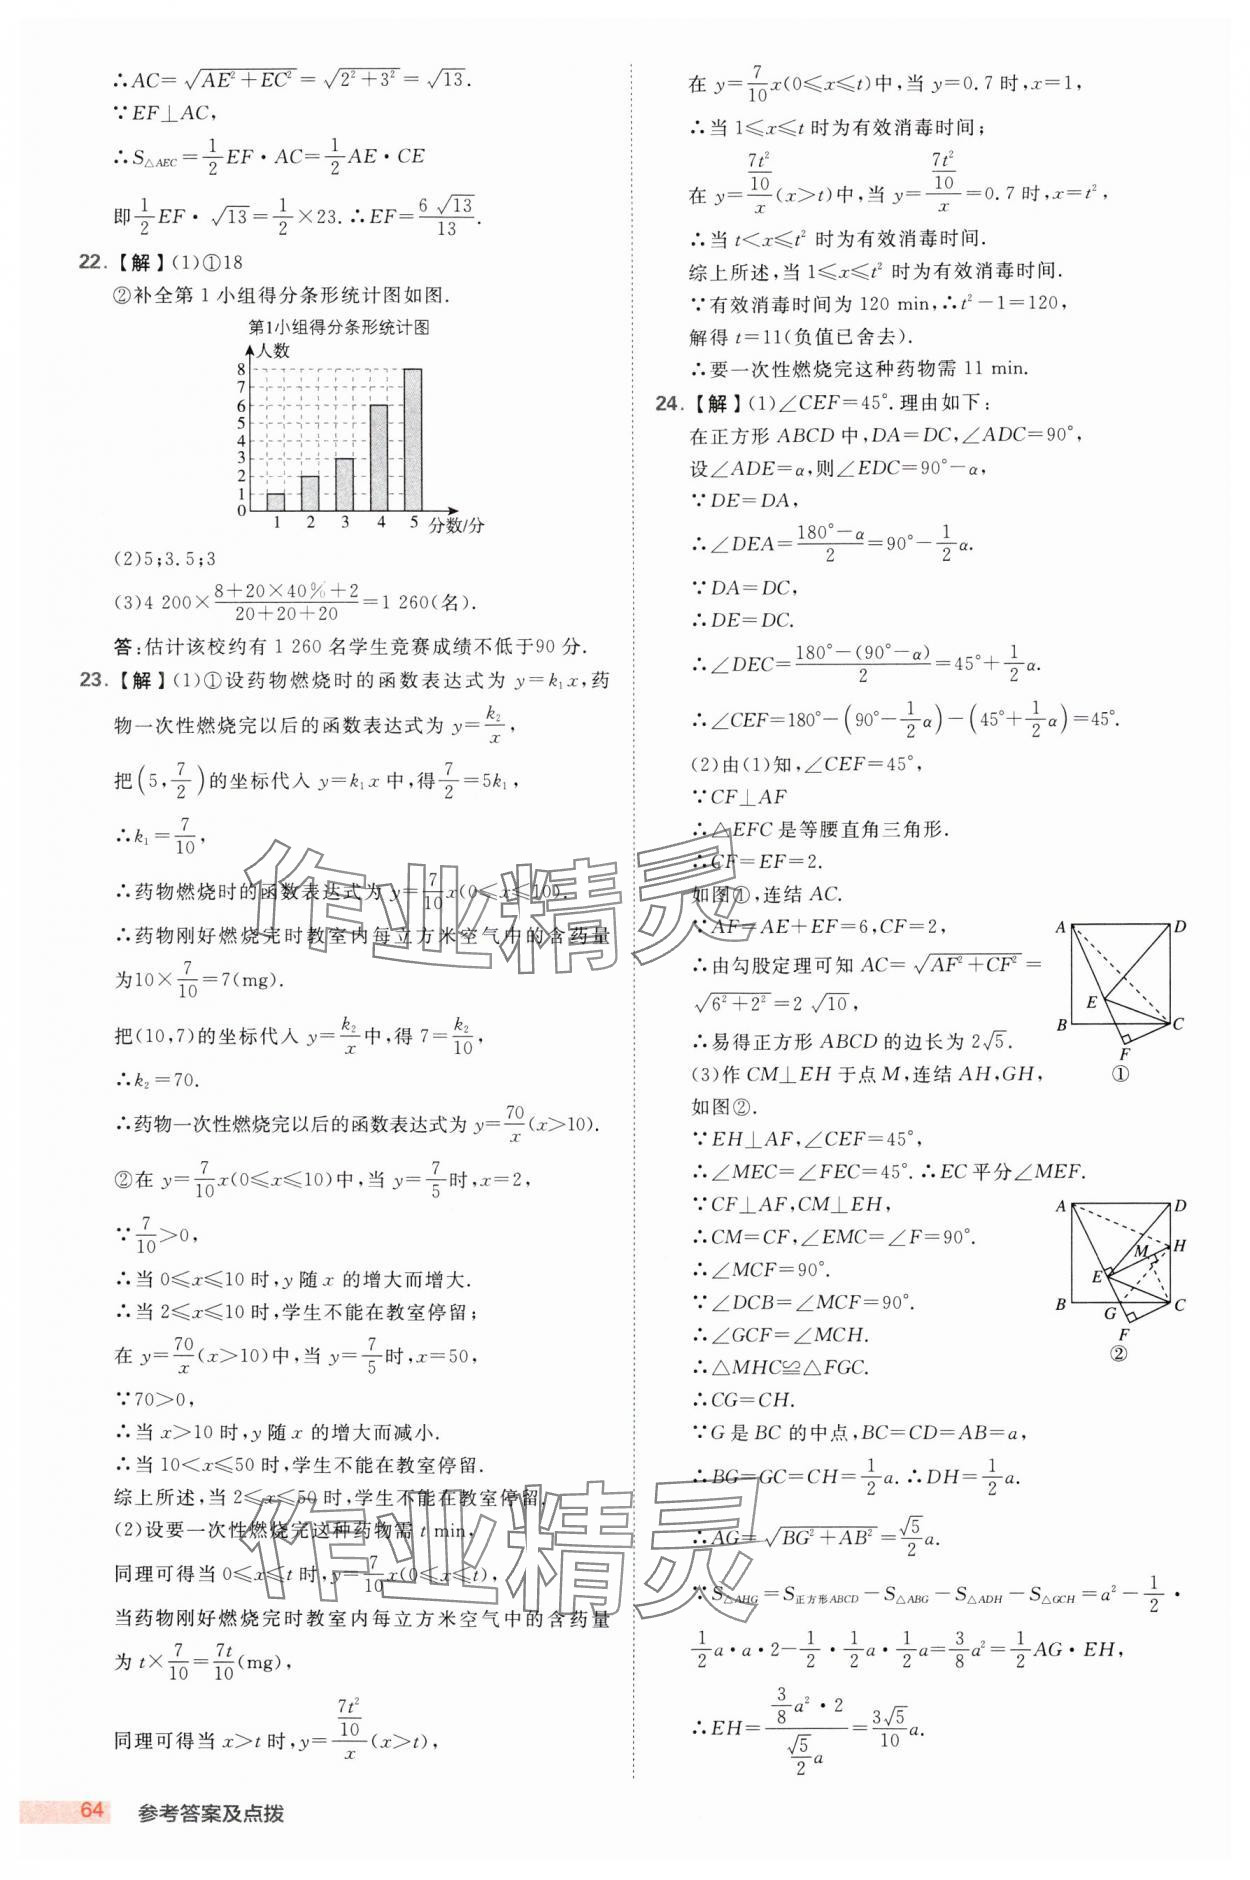 ∴AC=√(AE²+EC²)=√(2²+3²)=√13.
∵EF⊥AC,
∴S△AEC=1/2EF·AC=1/2AE·CE
即1/2EF·√13=1/2×23.∴EF=6√13/13.
22.【解】(1)①18
②补全第1小组得分条形统计图如图.
第1小组得分条形统计图
人数
8
7
6
5
4
3
2
1
0
1 2 3 4 5 分数/分
(2)5;3.5;3
(3)4 200×(8+20×40%+2)/(20+20+20)=1 260(名).
答:估计该校约有1 260名学生竞赛成绩不低于90分.
23.【解】(1)①设药物燃烧时的函数表达式为y=k₁x,药
物一次性燃烧完以后的函数表达式为y=k₂/x,
把(5,7/2)的坐标代入y=k₁x中,得7/2=5k₁,
∴k₁=7/10,
∴药物燃烧时的函数表达式为y=7/10x(0≤x≤10).
∴药物刚好燃烧完时教室内每立方米空气中的含药量
为10×7/10=7(mg).
把(10,7)的坐标代入y=k₂/x中,得7=k₂/10,
∴k₂=70.
∴药物一次性燃烧完以后的函数表达式为y=70/x(x>10).
②在y=7/10x(0≤x≤10)中,当y=7/5时,x=2,
∵7/10>0,
∴当0≤x≤10时,y随x的增大而增大.
∴当2≤x≤10时,学生不能在教室停留;
在y=70/x(x>10)中,当y=7/5时,x=50,
∵70>0,
∴当x>10时,y随x的增大而减小.
∴当10<x≤50时,学生不能在教室停留.
综上所述,当2≤x≤50时,学生不能在教室停留.
(2)设要一次性燃烧完这种药物需t min,
同理可得当0≤x≤t时,y=7/10x(0≤x≤t),
当药物刚好燃烧完时教室内每立方米空气中的含药量
为t×7/10=7t/10(mg),
同理可得当x>t时,y=(7t²/10)/x(x>t),
在y=7/10x(0≤x≤t)中,当y=0.7时,x=1,
∴当1≤x≤t时为有效消毒时间;
在y=(7t²/10)/x(x>t)中,当y=(7t²/10)/x=0.7时,x=t²,
∴当t<x≤t²时为有效消毒时间.
综上所述,当1≤x≤t²时为有效消毒时间.
∵有效消毒时间为120 min,∴t²-1=120,
解得t=11(负值已舍去).
∴要一次性燃烧完这种药物需11 min.
24.【解】(1)∠CEF=45°.理由如下:
在正方形ABCD中,DA=DC,∠ADC=90°,
设∠ADE=α,则∠EDC=90°-α,
∵DE=DA,
∴∠DEA=(180°-α)/2=90°-1/2α.
∵DA=DC,
∴DE=DC.
∴∠DEC=(180°-(90°-α))/2=45°+1/2α.
∴∠CEF=180°-(90°-1/2α)-(45°+1/2α)=45°.
(2)由(1)知,∠CEF=45°,
∵CF⊥AF
∴△EFC是等腰直角三角形.
∴CF=EF=2.
如图①,连结AC.
∵AF=AE+EF=6,CF=2,
∴由勾股定理可知AC=√(AF²+CF²)=
√(6²+2²)=2√10,
∴易得正方形ABCD的边长为2√5.
A D
E
B C
F
①
(3)作CM⊥EH于点M,连结AH,GH,
如图②.
∵EH⊥AF,∠CEF=45°,
∴∠MEC=∠FEC=45°.∴EC平分∠MEF.
∵CF⊥AF,CM⊥EH,
∴CM=CF,∠EMC=∠F=90°.
∴∠MCF=90°.
∵∠DCB=∠MCF=90°.
∴∠GCF=∠MCH.
∴△MHC≌△FGC.
∴CG=CH.
A D
M H
E
B G C
F
②
∵G是BC的中点,BC=CD=AB=a,
∴BG=GC=CH=1/2a.∴DH=1/2a.
∴AG=√(BG²+AB²)=√5/2a.
∵S△AHG=S正方形ABCD-S△ABG-S△ADH-S△GCH=a²-1/2·
1/2a·a·2-1/2·1/2a·1/2a=3/8a²=1/2AG·EH,
∴EH=(3/8a²·2)/(√5/2a)=3√5/10a.
64 参考答案及点拨
作业精灵
作业精灵